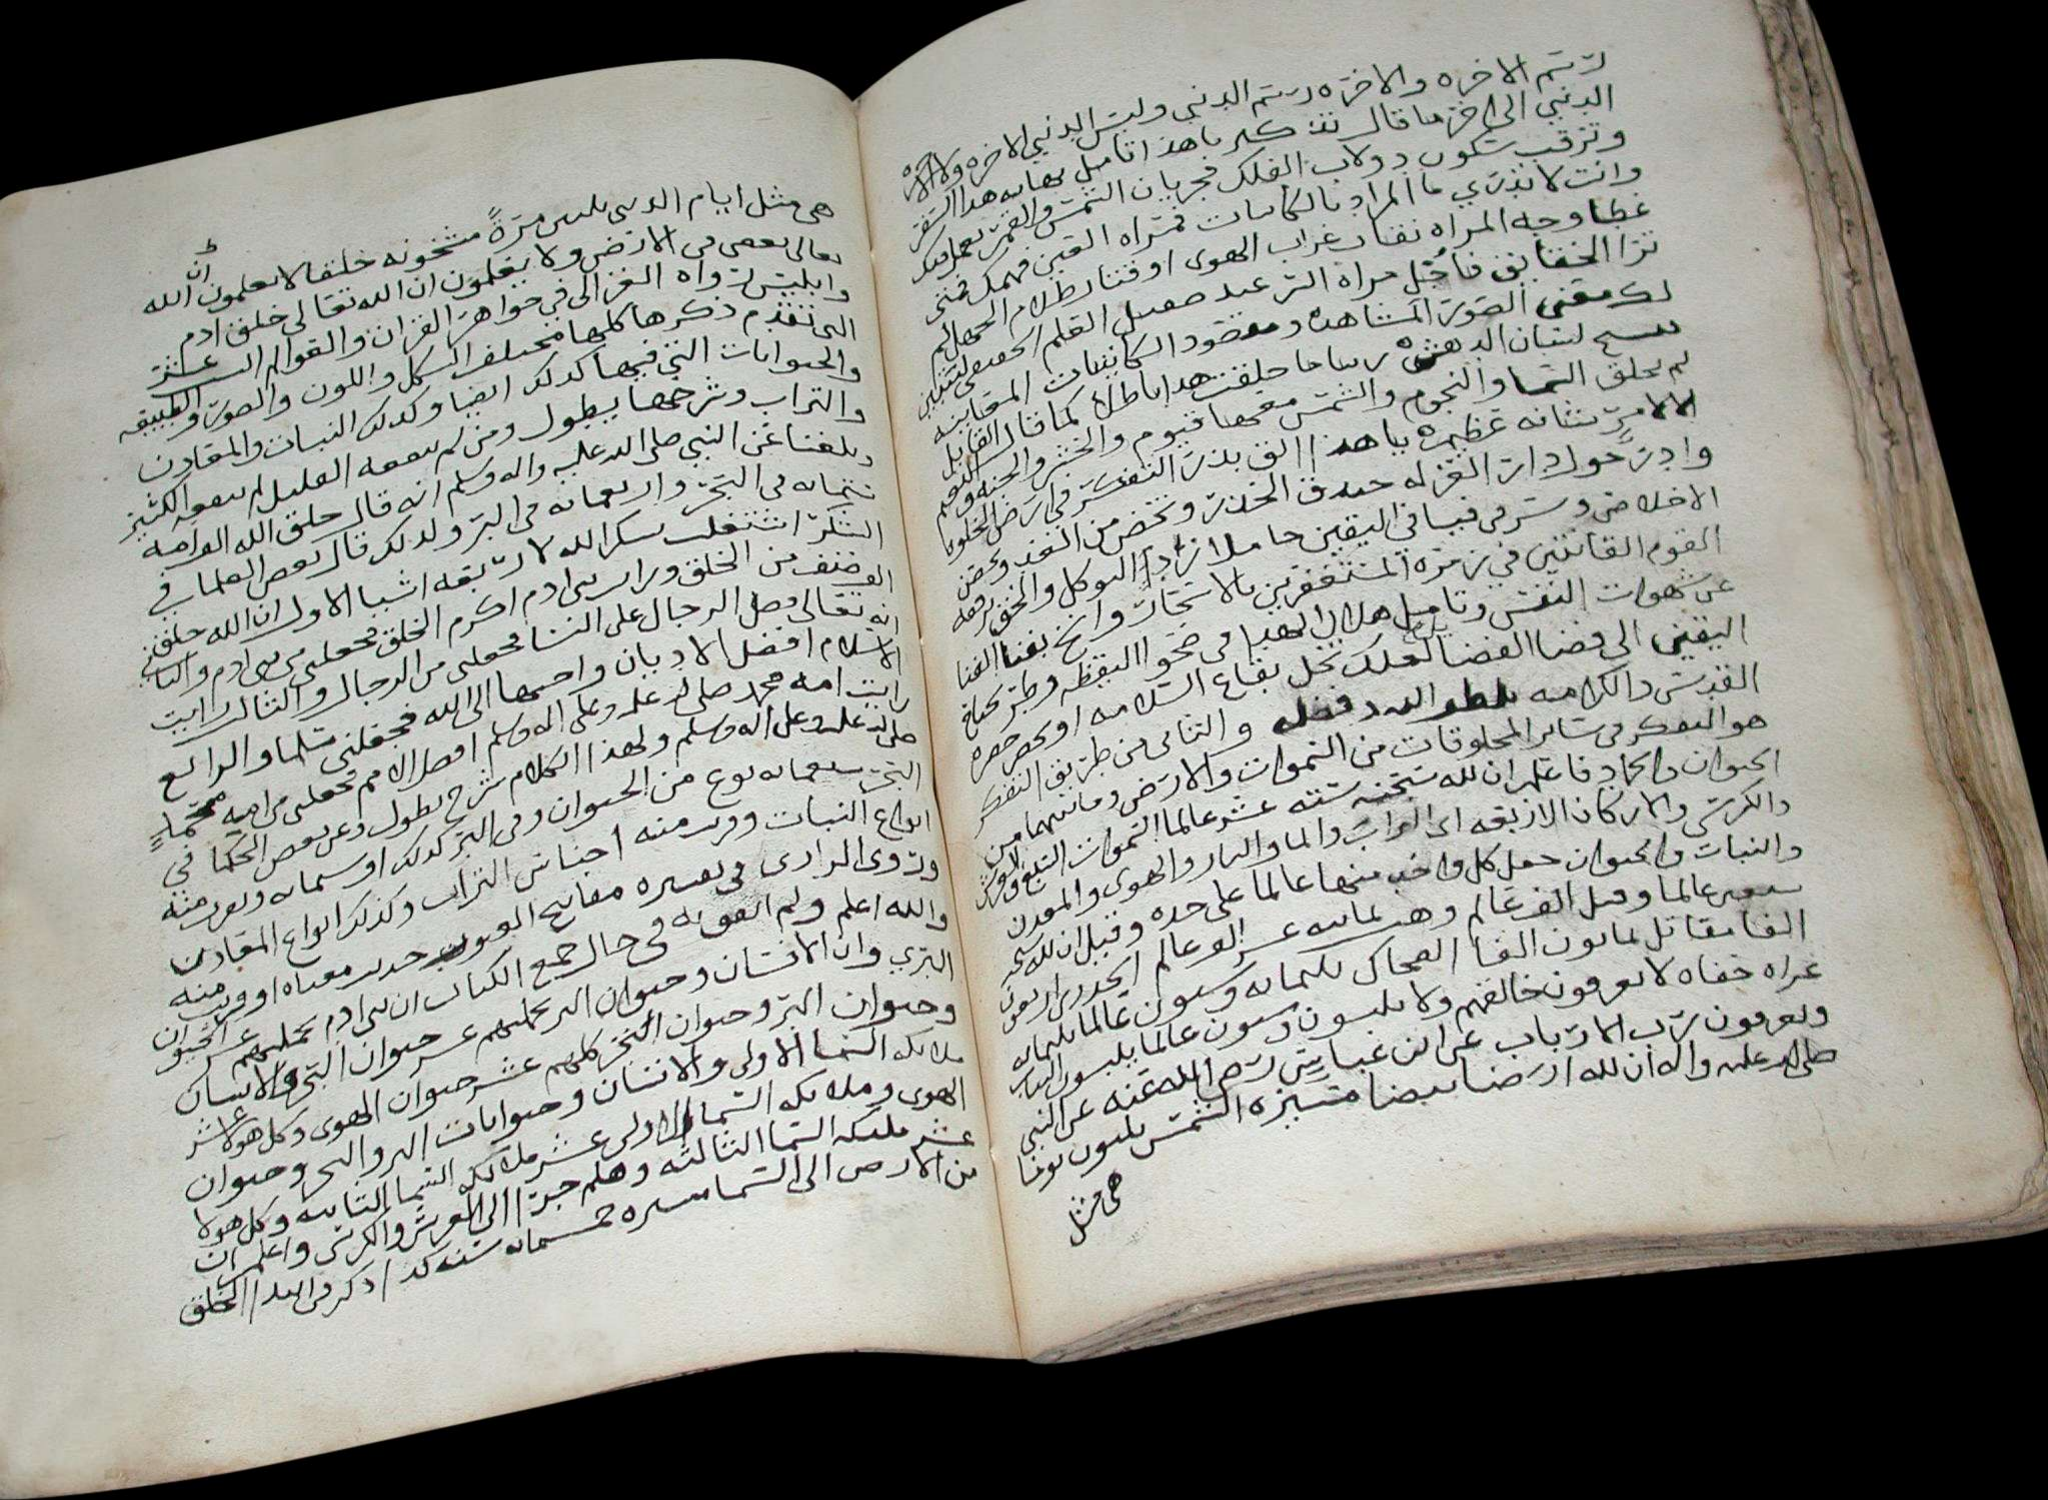 رسم الاخره والاخره رسم الدنيي وليس الدنيي الاخره ولا الاخره
الدنيي الى اخر ما قال تفكر يا هذا تامل نهايه هذا السفر
وترقب سكون دولاب الفلك فجريان الشمس والقمر
وانت لا تدري ما المراد بالكاينات فمراه القين فهمك فمتى
غطا وجه المراه نقاب غراب الهوى او قتار ظلام الجهل لم
ترا الحقايق فاجل مراه السر عند صقيل العلم
لك معنى الصور المشاهده ومقصود الكاينات المعاينه
لسان الدهش ربنا ما خلقت هذا باطلا كما قال القايل
لم يخلق السما والنجوم والشمس معها قيوم والحشر والجنه والنعيم
الا لامر شانه عظيم يا هذا الق بذر التفكر في ارض الخلوه
وادر حول دار العزله خندق الحذر
الاخلاص وسر في فيافي اليقين حاملا زاد التوكل
القوم القانتين في زمره المستغفرين بالاسحار بفنا الفنا
عن شهوات النفس وتامل هلال الهدى في صحو اليقظه وطر بجناح
اليقين الى فضا الفضا لعلك تحل بقاع السلامه او حضره
القدس والكرامه بلطف الله وفضله والثاني من طريق التفكر
هو التفكر في ساير المخلوقات من السموات والارض وما بينهما من
الحيوان والجماد فاعلم ان لله سبحنه سته عشر عالما السموات السبع والعرش
والكرسي والاركان الاربعه اي التراب والما والنار والهوى والمعدن
والنبات والحيوان جعل كل واحد منها عالما على حده وقيل ان لله سبحنه
سبعين عالما وقيل الف عالم وهب ثمانيه عشر الف عالم الخدري اربعون
الفا مقاتل ثمانون الفا الضحاك ثلثمايه وستون عالما ثلثمايه
عراه حفاه لا يعرفون خالقهم ولا يلبسون وستون عالما يلبسون الثياب
ويعرفون رب الارباب عن ابن عباس رضي الله عنه عن النبي
صلى الله عليه واله ان لله ارضا بيضا مسيره الشمس ثلثون يوما
هي مثل
هي مثل ايام الدنيى ثلثين مرةً مشحونه خلقا لا يعلمون ان الله
تعالى يعصى في الارض ولا يعلمون ان الله تعالى خلق ادم
وابليس رواه الغزالي في جواهر القران والعوالم الست عشر
التي تقدم ذكرها كلها مختلف الشكل واللون والصور والطبيعه
والحيوانات التي فيها كذلك ايضا وكذلك النبات والمعادن
والتراب وشرحها يطول ومن لم ينفعه القليل لم ينفعه الكثير
وبلغنا عن النبي صلى الله عليه واله وسلم انه قال خلق الله الف امه
ستمايه في البحر واربعمايه في البر ولذلك قال بعض العلما في
الشكر اشتغلت بشكر الله لاربعه اشيا الاول ان الله خلق
الف صنف من الخلق ورايت بني ادم اكرم الخلق فجعلني من بني ادم والثاني
انه تعالى فضل الرجال على النسا فجعلني من الرجال والثالث رايت
الاسلام افضل الاديان واحبها الى الله فجعلني مسلما والرابع
رايت امه محمد صلى الله عليه وعلى اله وسلم افضل الامم فجعلني من امه محمد
صلى الله عليه وعلى اله وسلم ولهذا الكلام شرح يطول وعن بعض الحكما في
البحر سبعمايه نوع من الحيوان وفي البر كذلك او ستمايه وقريب منه
انواع النبات وقريب منه اجناس التراب وكذلك انواع المعادن
وروى الرازي في تفسيره مفاتيح الغيوب حديث معناه او قريب منه
والله اعلم ولم اقف به في حال جمع الكتاب ان بني ادم بجملتهم عشر الحيوان
البري وان الانسان وحيوان البر بجملتهم عشر حيوان البحر والانسان
وحيوان البر وحيوان البحر كلهم عشر حيوان الهوى وكل هولا عشر
ملايكه السما الاولى والانسان وحيوانات البر والبحر وحيوان
الهوى وملايكه السما الاولى عشر ملايكه السما الثانيه وكل هولا
عشر مليكه السما الثالثه وهلم جرا الى العرش والكرسي واعلم ان
من الارض الى السما مسيره خمسمايه سنه كذا ذكر في ابتدا الخلق